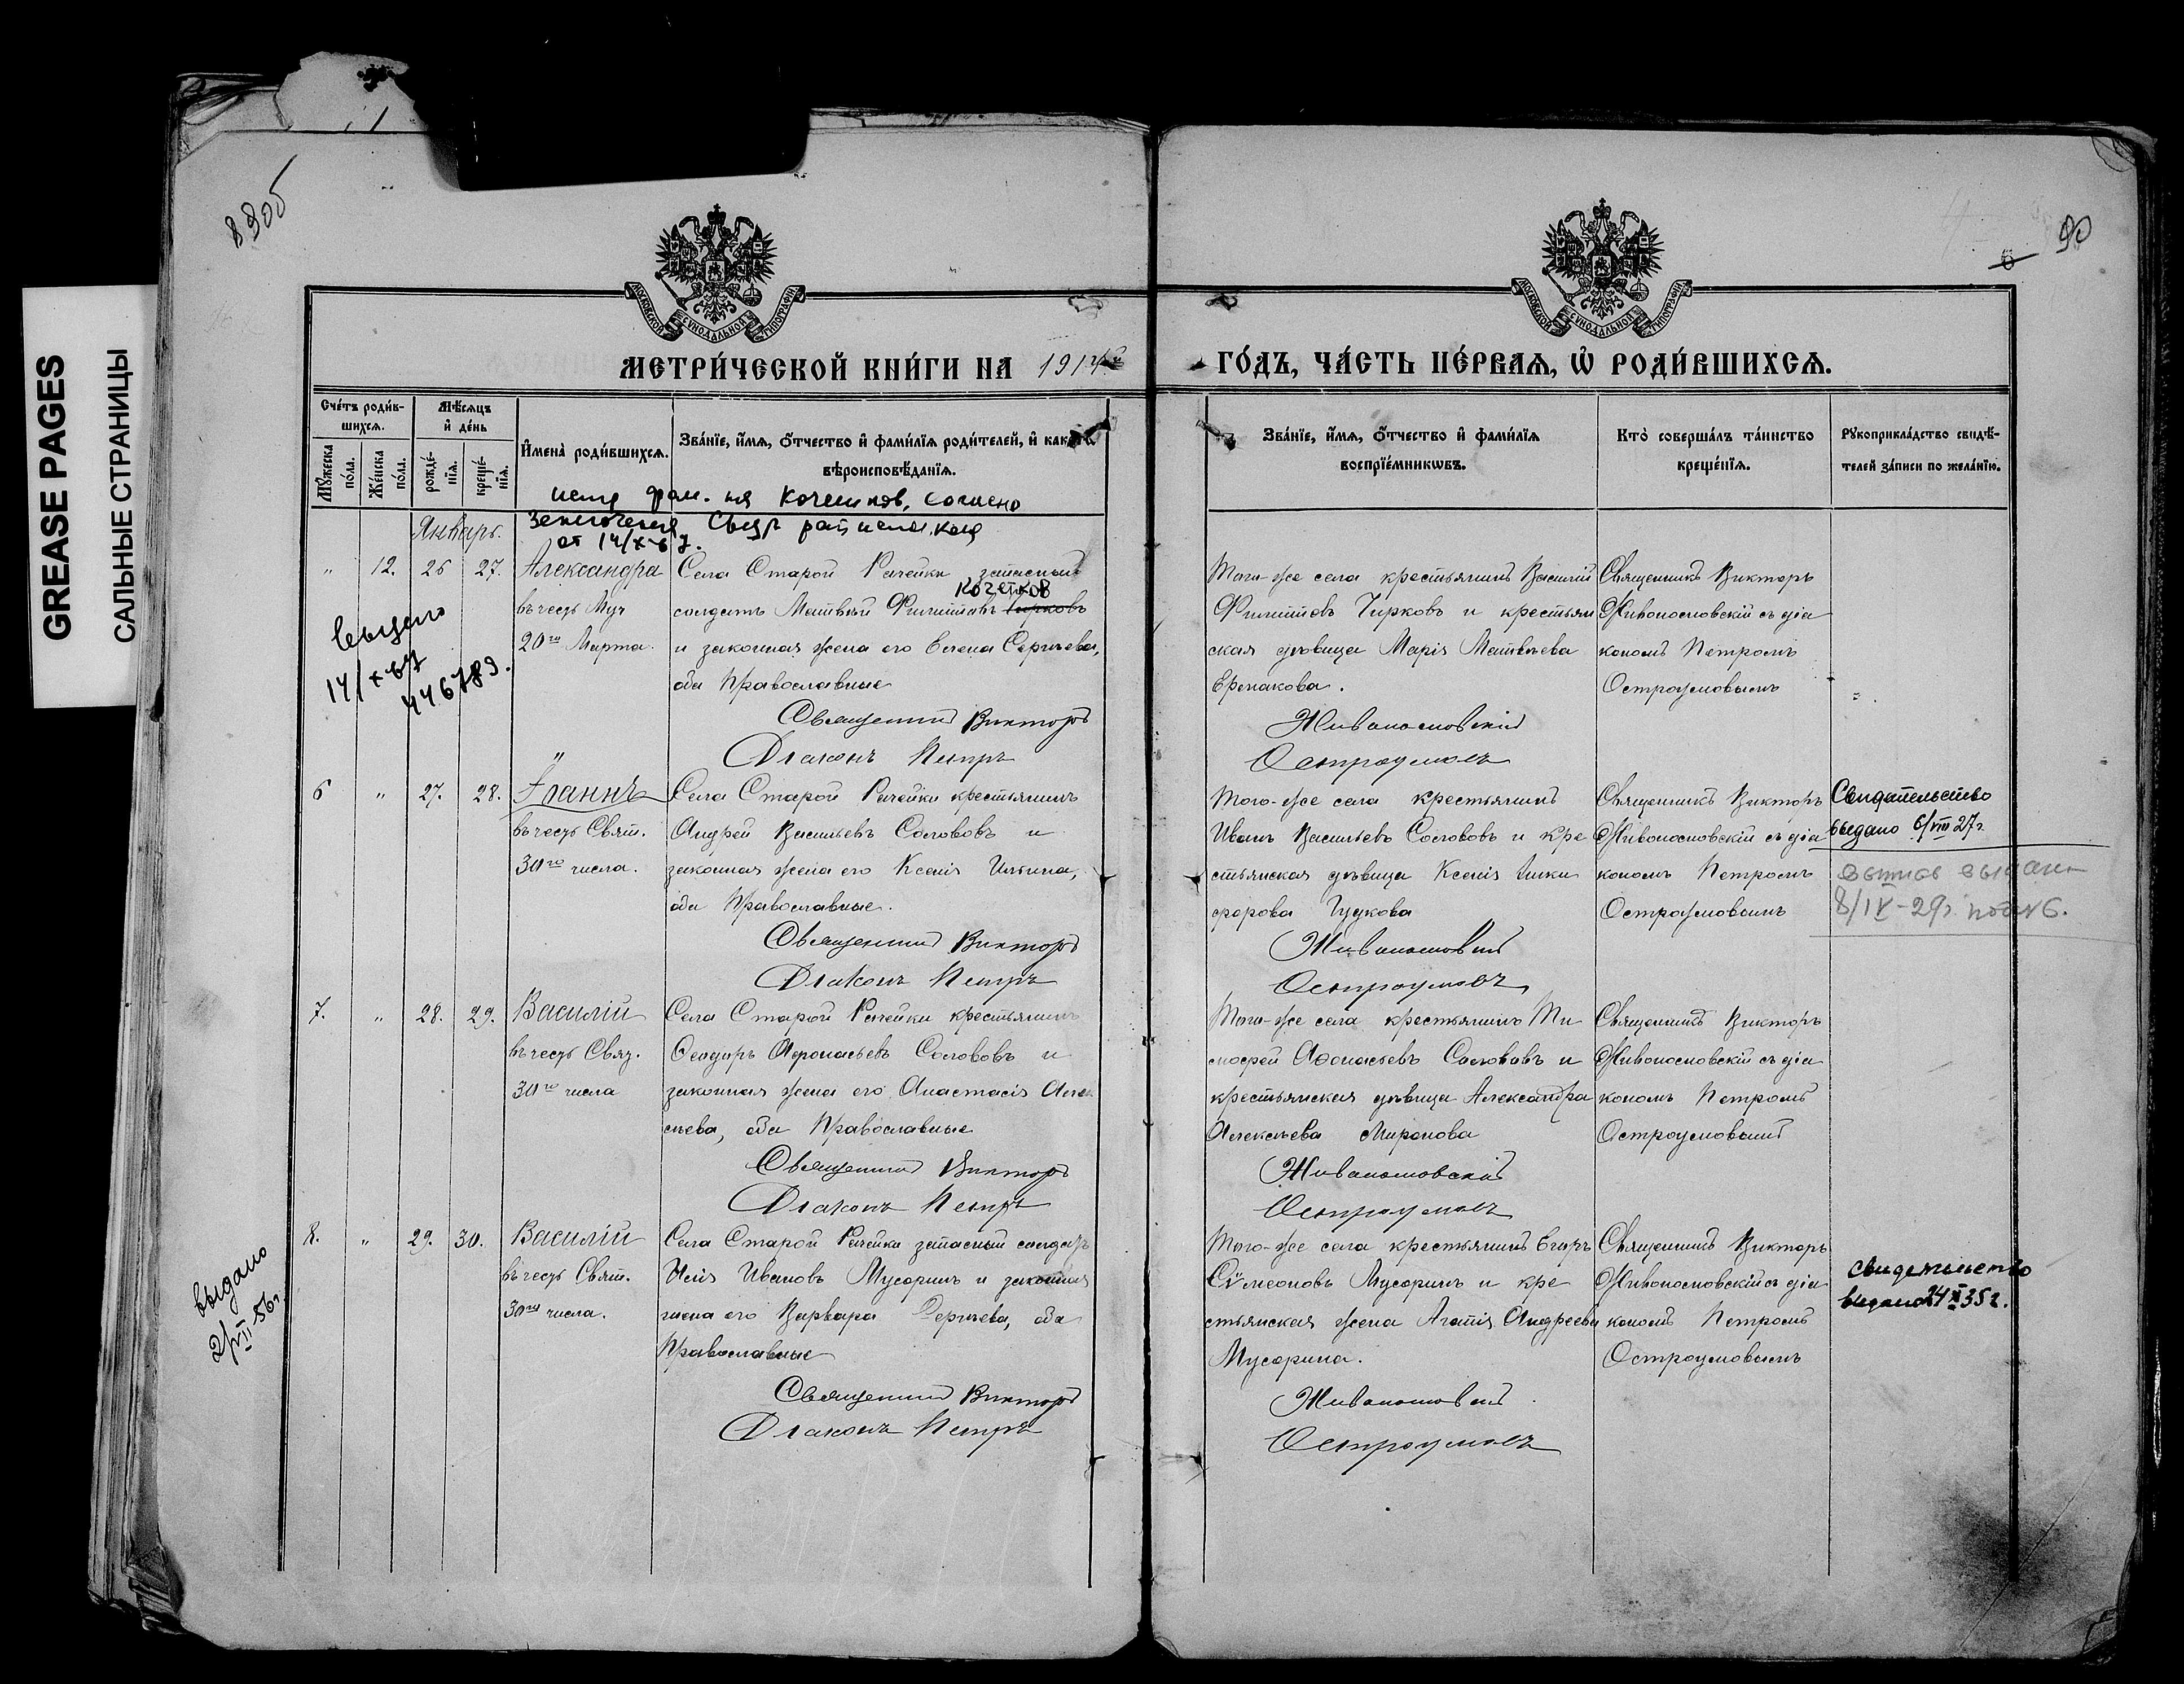 GREASE PAGES
САЛЬНЫЕ СТРАНИЦЫ
89об
90
МОСКОВСКОЙ СУНОДАЛЬНОЙ ТИПОГРАФІИ
МОСКОВСКОЙ СУНОДАЛЬНОЙ ТИПОГРАФІИ
МЕТРИ́ЧЕСКОЙ КНИ́ГИ НА 1914
ГО́ДЪ, ЧА́СТЬ ПЕ́РВАЯ, Ѡ РОДИ́ВШИХСЯ.
Сче́тъ роди́в-
шихся.
Мѣ́сяцъ
и де́нь
Мꙋ́жеска по́ла.
Же́нска по́ла.
рожде́-
нїя.
креще́-
нїя.
Имена̀ роди́вшихся.
Зва́нїе, и́мя, о́тчество и фами́лїя роди́телей, и како́гѡ
вѣроисповѣ́данїя.
Зва́нїе, и́мя, о́тчество и фами́лїя
воспрїе́мникѡвъ.
Кто̀ соверша́лъ та́инство
креще́нїя.
Рꙋкоприкла́дство свидѣ́-
телей за́писи по жела́нїю.
фам. на Кочетков, согласно
от 14/X-67.
Январь.
" 12. 26 27. Александра
въ честь Муч
20го Марта.
Села Старой Рачейки запасный
Кочетков
солдатъ Матвѣй Филипповъ Чирковъ
и законная жена его Елена Сергѣева,
оба Православные
Священникъ Викторъ
Діаконъ Петръ
Того-же села крестьянинъ Василій
Филипповъ Чирковъ и крестьян
ская дѣвица Марія Матвѣева
Ермакова.
Живоносновскій
Остроумовъ
Священникъ Викторъ
Живоносновскій съ діа
кономъ Петромъ
Остроумовымъ
выдано
14/X-67
446789.
6 " 27. 28. Іоаннъ
въ честь Свят.
30го числа.
Села Старой Рачейки крестьянинъ
Андрей Васильевъ Солововъ и
законная жена его Ксенія Ильина,
оба Православные.
Священникъ Викторъ
Діаконъ Петръ
Того-же села крестьянинъ
Иванъ Васильевъ Солововъ и кре
стьянская дѣвица Ксенія Ники
форова Гудкова
Живоносновскій
Остроумовъ
Священникъ Викторъ
Живоносновскій съ діа
кономъ Петромъ
Остроумовымъ
Свидательство
выдано 6/VIII 27г
8/IV-29г.
7. " 28. 29. Василій
въ честь Свят.
30го числа
Села Старой Рачейки крестьянинъ
Ѳеодоръ Афонасьевъ Солововъ и
законная жена его Анастасія Алек
сѣева, оба Православные
Священникъ Викторъ
Діаконъ Петръ
Того-же села крестьянинъ Ти
мофей Афонасьевъ Солововъ и
крестьянская дѣвица Александра
Алексѣева Миронова
Живоносновскій
Остроумовъ
Священникъ Викторъ
Живоносновскій съ діа
кономъ Петромъ
Остроумовымъ
8. " 29. 30. Василій
въ честь Свят.
30го числа.
Села Старой Рачейки запасный солдатъ
Илія Ивановъ Мусоринъ и законная
жена его Варвара Сергѣева, оба
Православные
Священникъ Викторъ
Діаконъ Петръ
Того-же села крестьянинъ Егоръ
Сѵмеоновъ Мусоринъ и кре
стьянская жена Агапія Андреева
Мусорина.
Живоносновскій
Остроумовъ
Священникъ Викторъ
Живоносновскій съ діа
кономъ Петромъ
Остроумовымъ
Свидетельство
выдано 24 XI 35 г.
выдано
2/VIII 56г.